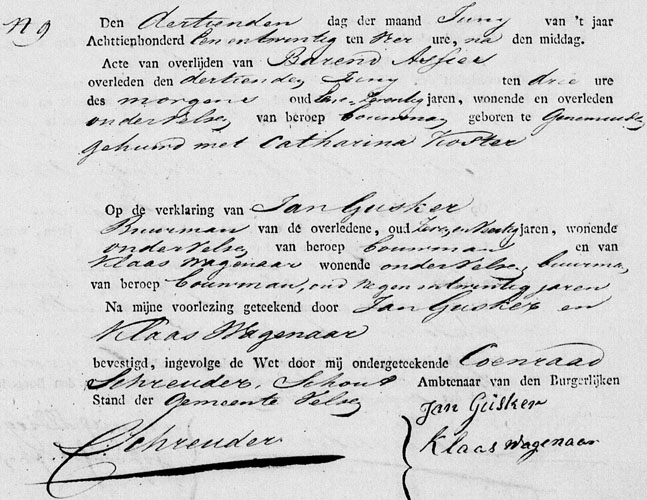 N 9
Den dertienden dag der maand Juny van 't jaar
Achttienhonderd Een en twintig ten vier ure, na den middag.
Acte van overlijden van Barend Assies
overleden den dertienden Juny ten drie ure
des morgens oud jaren, wonende en overleden
onder Velsen van beroep bouwman geboren te Genemuiden
gehuwd met Catharina Koster
Op de verklaring van Jan Gusker
Buurman van de overledene, oud jaren, wonende
onder Velsen van beroep bouwman en van
Klaas Wagenaar wonende onder Velsen buurman
van beroep bouwman, oud Negen en twintig jaren
Na mijne voorlezing geteekend door Jan Gusker en
Klaas Wagenaar
bevestigd, ingevolge de Wet door mij ondergeteekende Coenraad
Schreuder, Schout Ambtenaar van den Burgerlijken
Stand der Gemeente Velsen
Jan Güsker
CSchreuder
Klaas Wagenaar